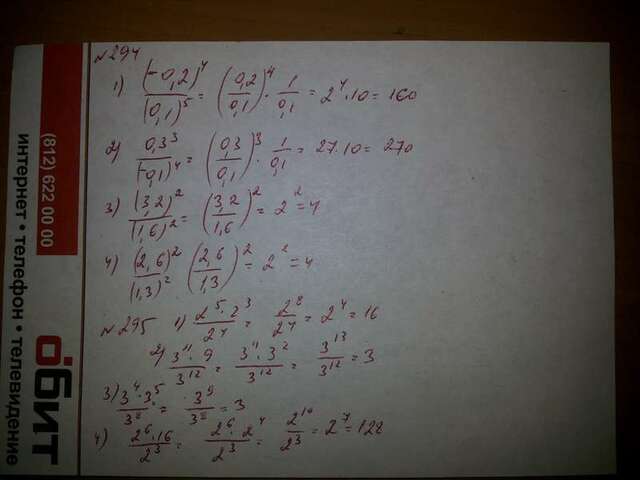 №294
1) (-0,2)^4/(0,1)^5 = (0,2/0,1)^4 · 1/0,1 = 2^4·10 = 160
2) 0,3^3/(-0,1)^4 = (0,3/0,1)^3 · 1/0,1 = 27·10 = 270
3) (3,2)^2/(1,6)^2 = (3,2/1,6)^2 = 2^2 = 4
4) (2,6)^2/(1,3)^2 (2,6/1,3)^2 = 2^2 = 4
№295 1) 2^5·2^3/2^4 = 2^8/2^4 = 2^4 = 16
2) 3^11·9/3^12 = 3^11·3^2/3^12 = 3^13/3^12 = 3
3) 3^4·3^5/3^8 = 3^9/3^8 = 3
4) 2^6·16/2^3 = 2^6·2^4/2^3 = 2^10/2^3 = 2^7 = 128
(812) 622 00 00
интернет • телефон • телевидение
обит